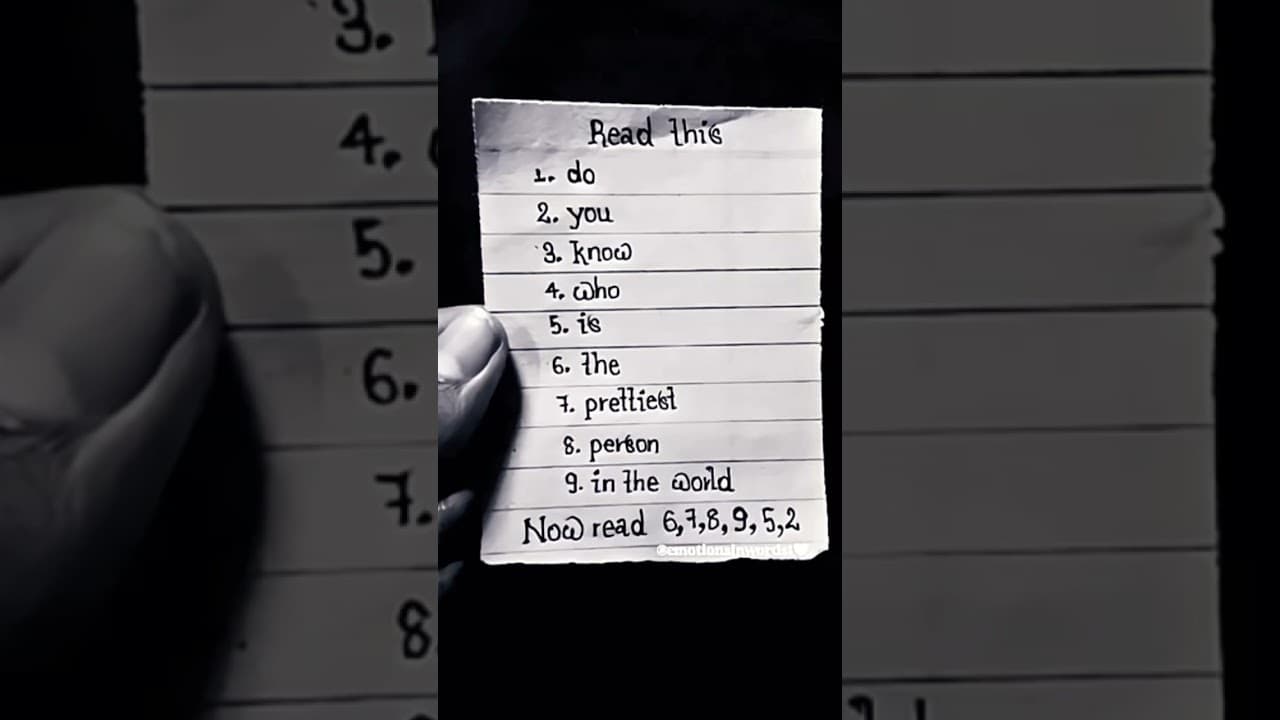 Read this
1. do
2. you
3. know
4. who
5. is
6. the
7. prettiest
8. person
9. in the world
Now read 6,7,8,9,5,2
@emotionsinwords1
3.
4.
5.
6.
7.
8.